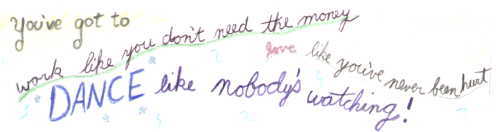 You've got to
work like you don't need the money
love like you've never been hurt
DANCE like nobody's watching!